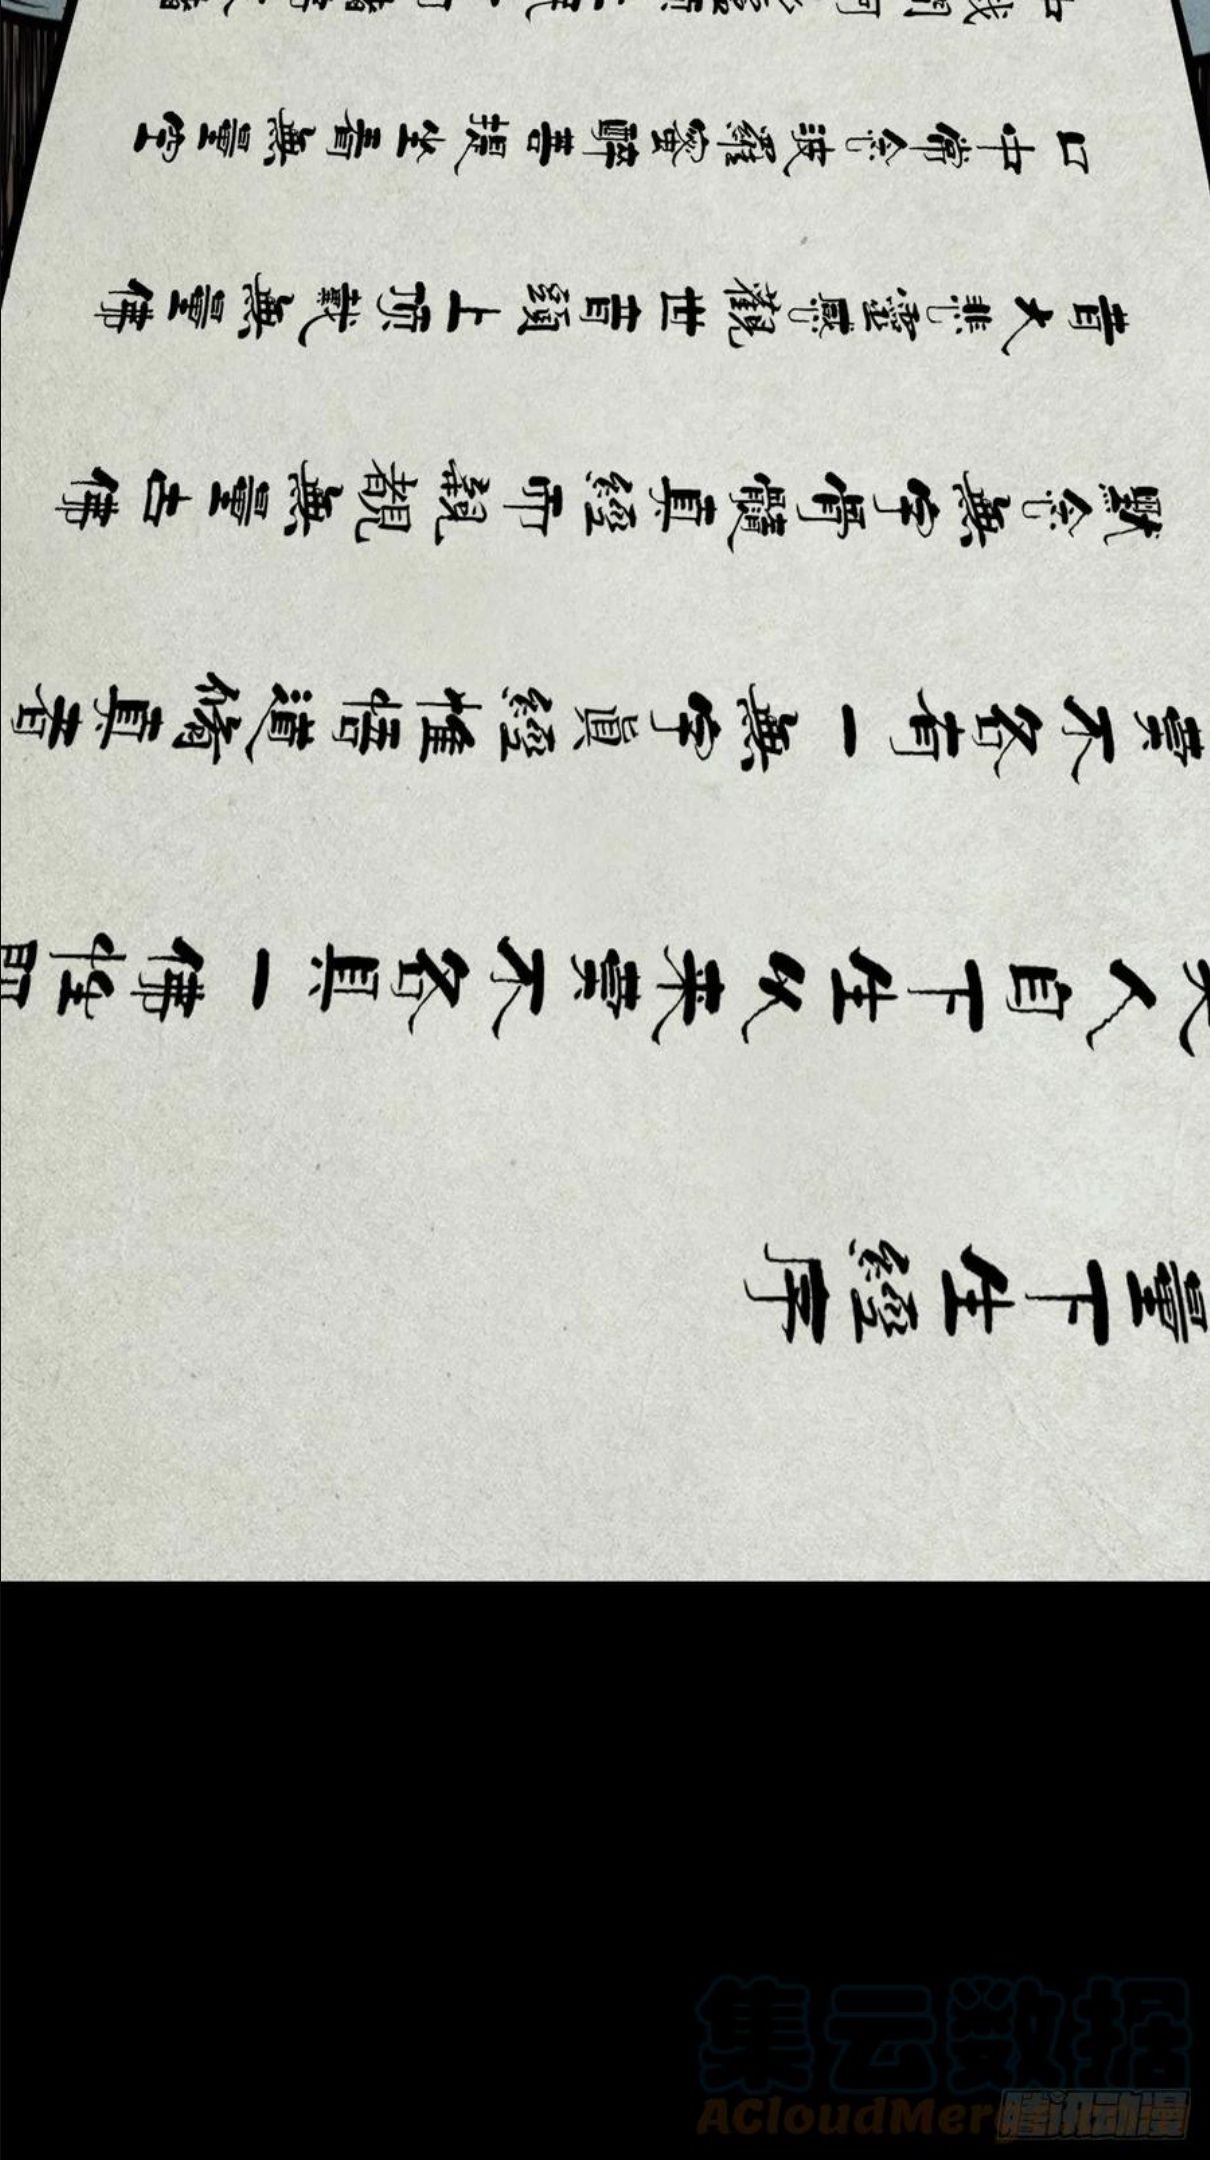 量下生經序
人自下生以来莫不各具一佛性即
莫不各有一無字真經惟悟道脩真者
默念無字骨髓真經而親覩無量古佛
音大悲靈感觀世音頭上頂戴無量佛
口中常念波羅蜜醉菩提坐看無量空
集云数据
ACloudMerge
腾讯动漫